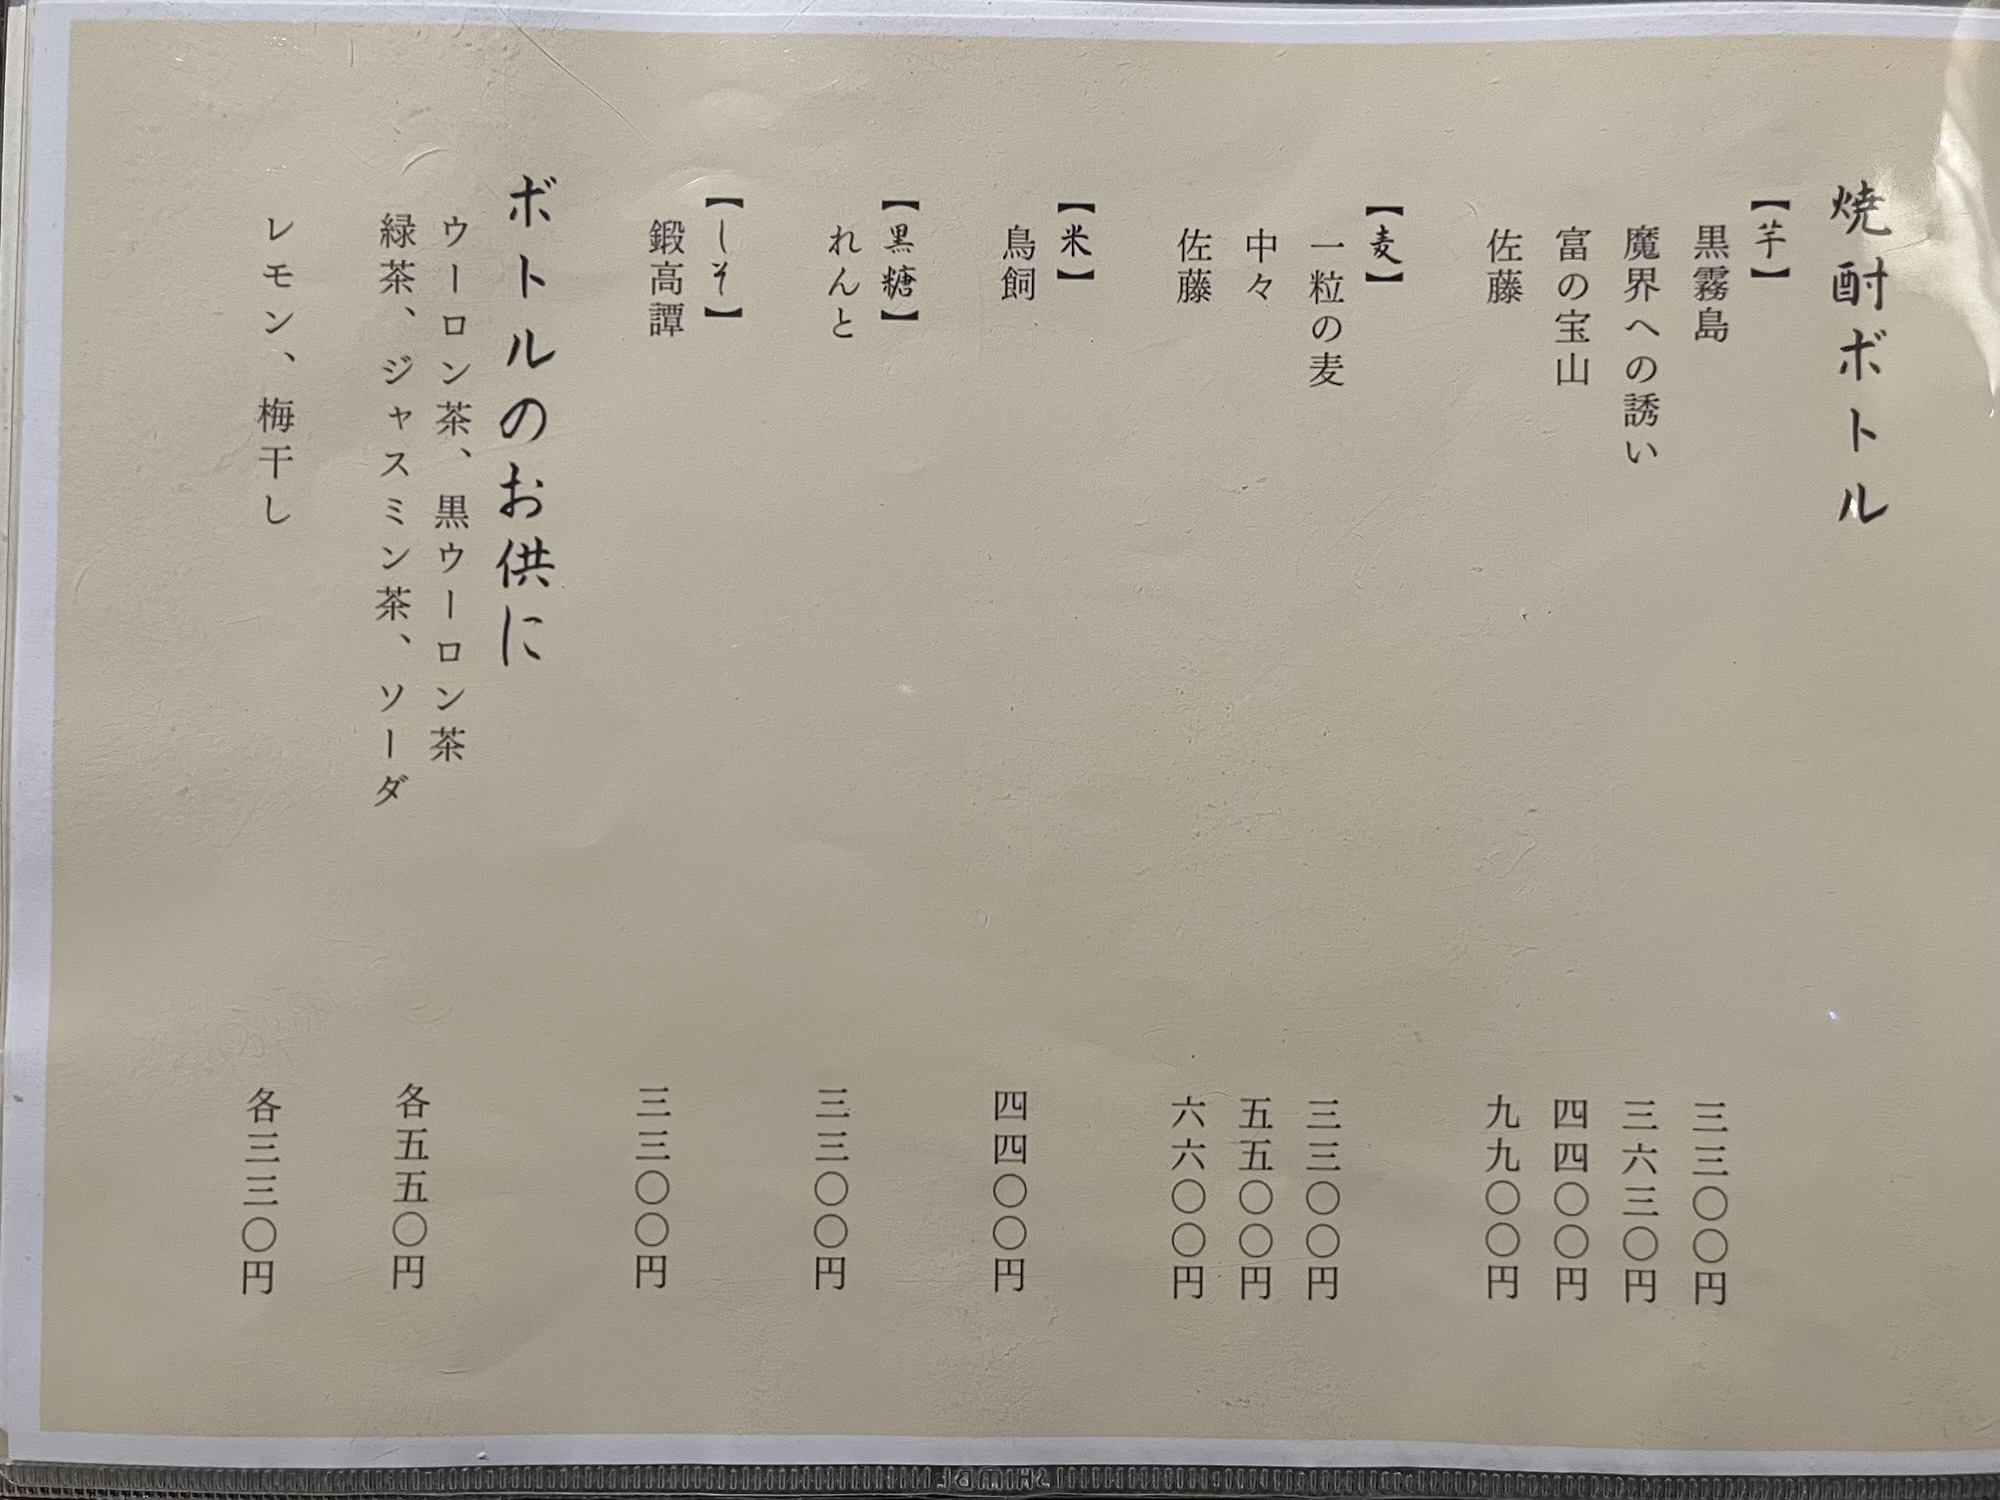 焼酎ボトル
【芋】
黒霧島 三三〇〇円
魔界への誘い 三六三〇円
富の宝山 四四〇〇円
佐藤 九九〇〇円
【麦】
一粒の麦 三三〇〇円
中々 五五〇〇円
佐藤 六六〇〇円
【米】
鳥飼 四四〇〇円
【黒糖】
れんと 三三〇〇円
【しそ】
鍛高譚 三三〇〇円
ボトルのお供に
ウーロン茶、黒ウーロン茶
緑茶、ジャスミン茶、ソーダ 各五五〇円
レモン、梅干し 各三三〇円